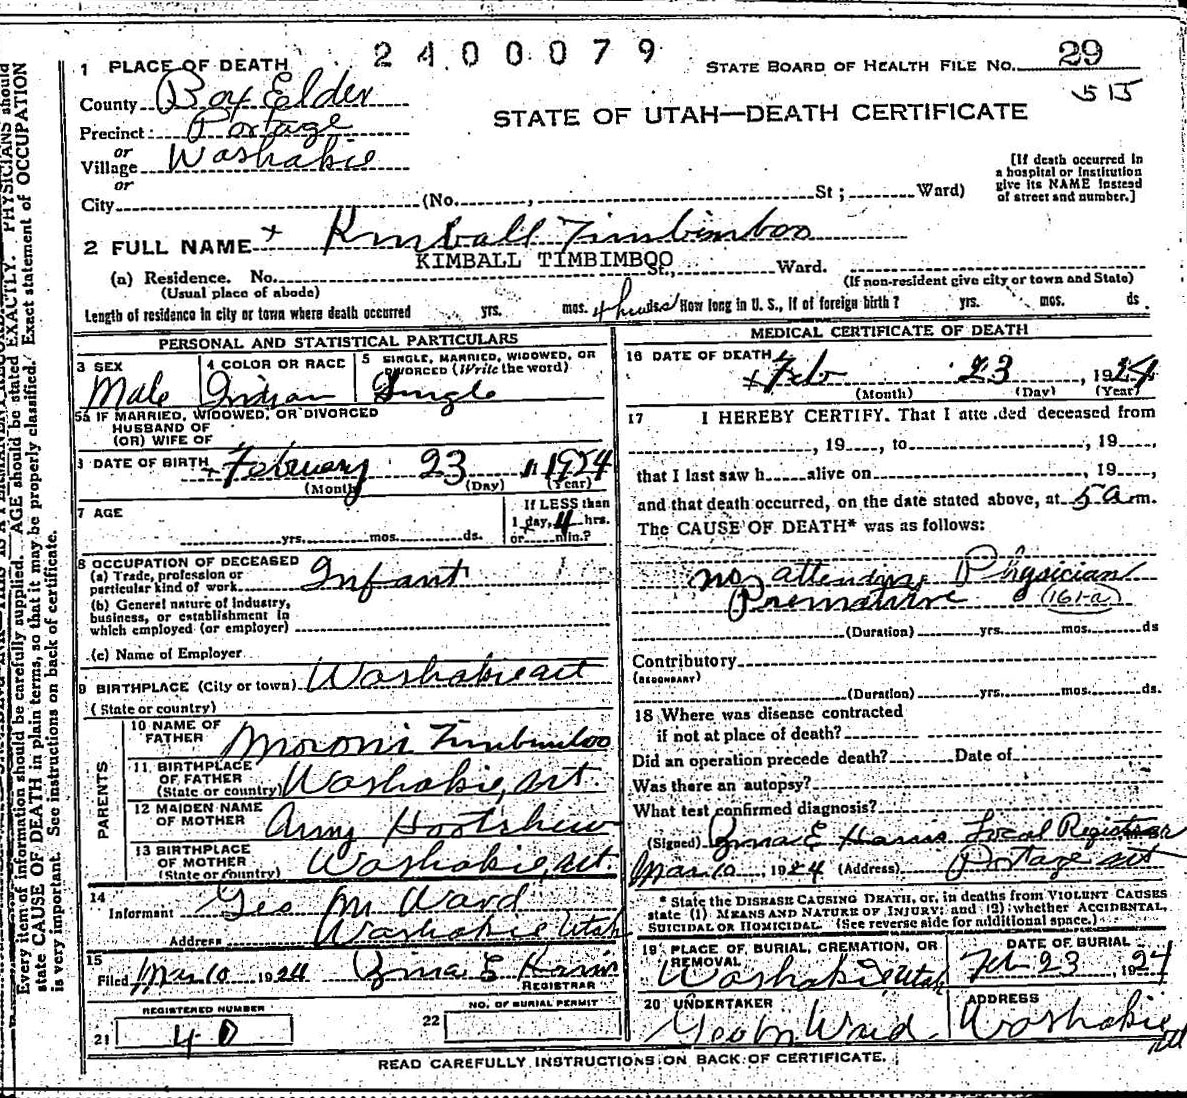 2400079
1 PLACE OF DEATH
STATE BOARD OF HEALTH FILE NO. 29
County Box Elder
STATE OF UTAH—DEATH CERTIFICATE
Precinct Portage
or
Village Washakie
or
[If death occurred in
a hospital or institution
give its NAME instead
of street and number.]
City (No. , St; Ward)
2 FULL NAME Kimball Timbimboo
KIMBALL TIMBIMBOO
(a) Residence. No. St., Ward.
(Usual place of abode) (If non-resident give city or town and State)
Length of residence in city or town where death occurred yrs. mos. 4 hours How long in U. S., If of foreign birth? yrs. mos. ds.
PERSONAL AND STATISTICAL PARTICULARS
3 SEX Male
4 COLOR OR RACE Indian
5 SINGLE, MARRIED, WIDOWED, OR
DIVORCED (Write the word) Single
5a IF MARRIED, WIDOWED, OR DIVORCED
HUSBAND OF
(OR) WIFE OF
DATE OF BIRTH February 23 1924
(Month) (Day) (Year)
7 AGE yrs. mos. ds.
If LESS than
1 day, 4 hrs.
or min.?
8 OCCUPATION OF DECEASED
(a) Trade, profession or
particular kind of work Infant
(b) General nature of Industry,
business, or establishment in
which employed (or employer)
(c) Name of Employer
9 BIRTHPLACE (City or town) Washakie ut
(State or country)
PARENTS
10 NAME OF
FATHER Moroni Timbimboo
11 BIRTHPLACE
OF FATHER
(State or country) Washakie, ut
12 MAIDEN NAME
OF MOTHER Amy Hootshew
13 BIRTHPLACE
OF MOTHER
(State or country) Washakie, ut
14
Informant Geo M. Ward
Address Washakie Utah
15
Filed Mar 10 1924 E Harris
REGISTRAR
REGISTERED NUMBER
21 40
NO. OF BURIAL PERMIT
22
MEDICAL CERTIFICATE OF DEATH
16 DATE OF DEATH Feb 23, 1924
(Month) (Day) (Year)
17 I HEREBY CERTIFY. That I attended deceased from
, 19 , to , 19 ,
that I last saw h alive on , 19 ,
and that death occurred, on the date stated above, at 5 a m.
The CAUSE OF DEATH* was as follows:
no attending Physician
Premature (161-a)
(Duration) yrs. mos. ds
Contributory
(SECONDARY)
(Duration) yrs. mos. ds.
18 Where was disease contracted
if not at place of death?
Did an operation precede death? Date of
Was there an autopsy?
What test confirmed diagnosis?
(Signed) E Harris Local Registrar
Mar 10, 1924 (Address) Portage ut
* State the DISEASE CAUSING DEATH, or, in deaths from VIOLENT CAUSES
state (1) MEANS AND NATURE OF INJURY; and (2) whether ACCIDENTAL,
SUICIDAL OR HOMICIDAL. (See reverse side for additional space.)
19 PLACE OF BURIAL, CREMATION, OR
REMOVAL Washakie Utah
DATE OF BURIAL
Feb 23, 1924
20 UNDERTAKER
Geo M Ward
ADDRESS
Washakie
READ CAREFULLY INSTRUCTIONS ON BACK OF CERTIFICATE.
Every item of information should be carefully supplied. AGE should be stated EXACTLY. PHYSICIANS should
state CAUSE OF DEATH in plain terms, so that it may be properly classified. Exact statement of OCCUPATION
is very important. See instructions on back of certificate.